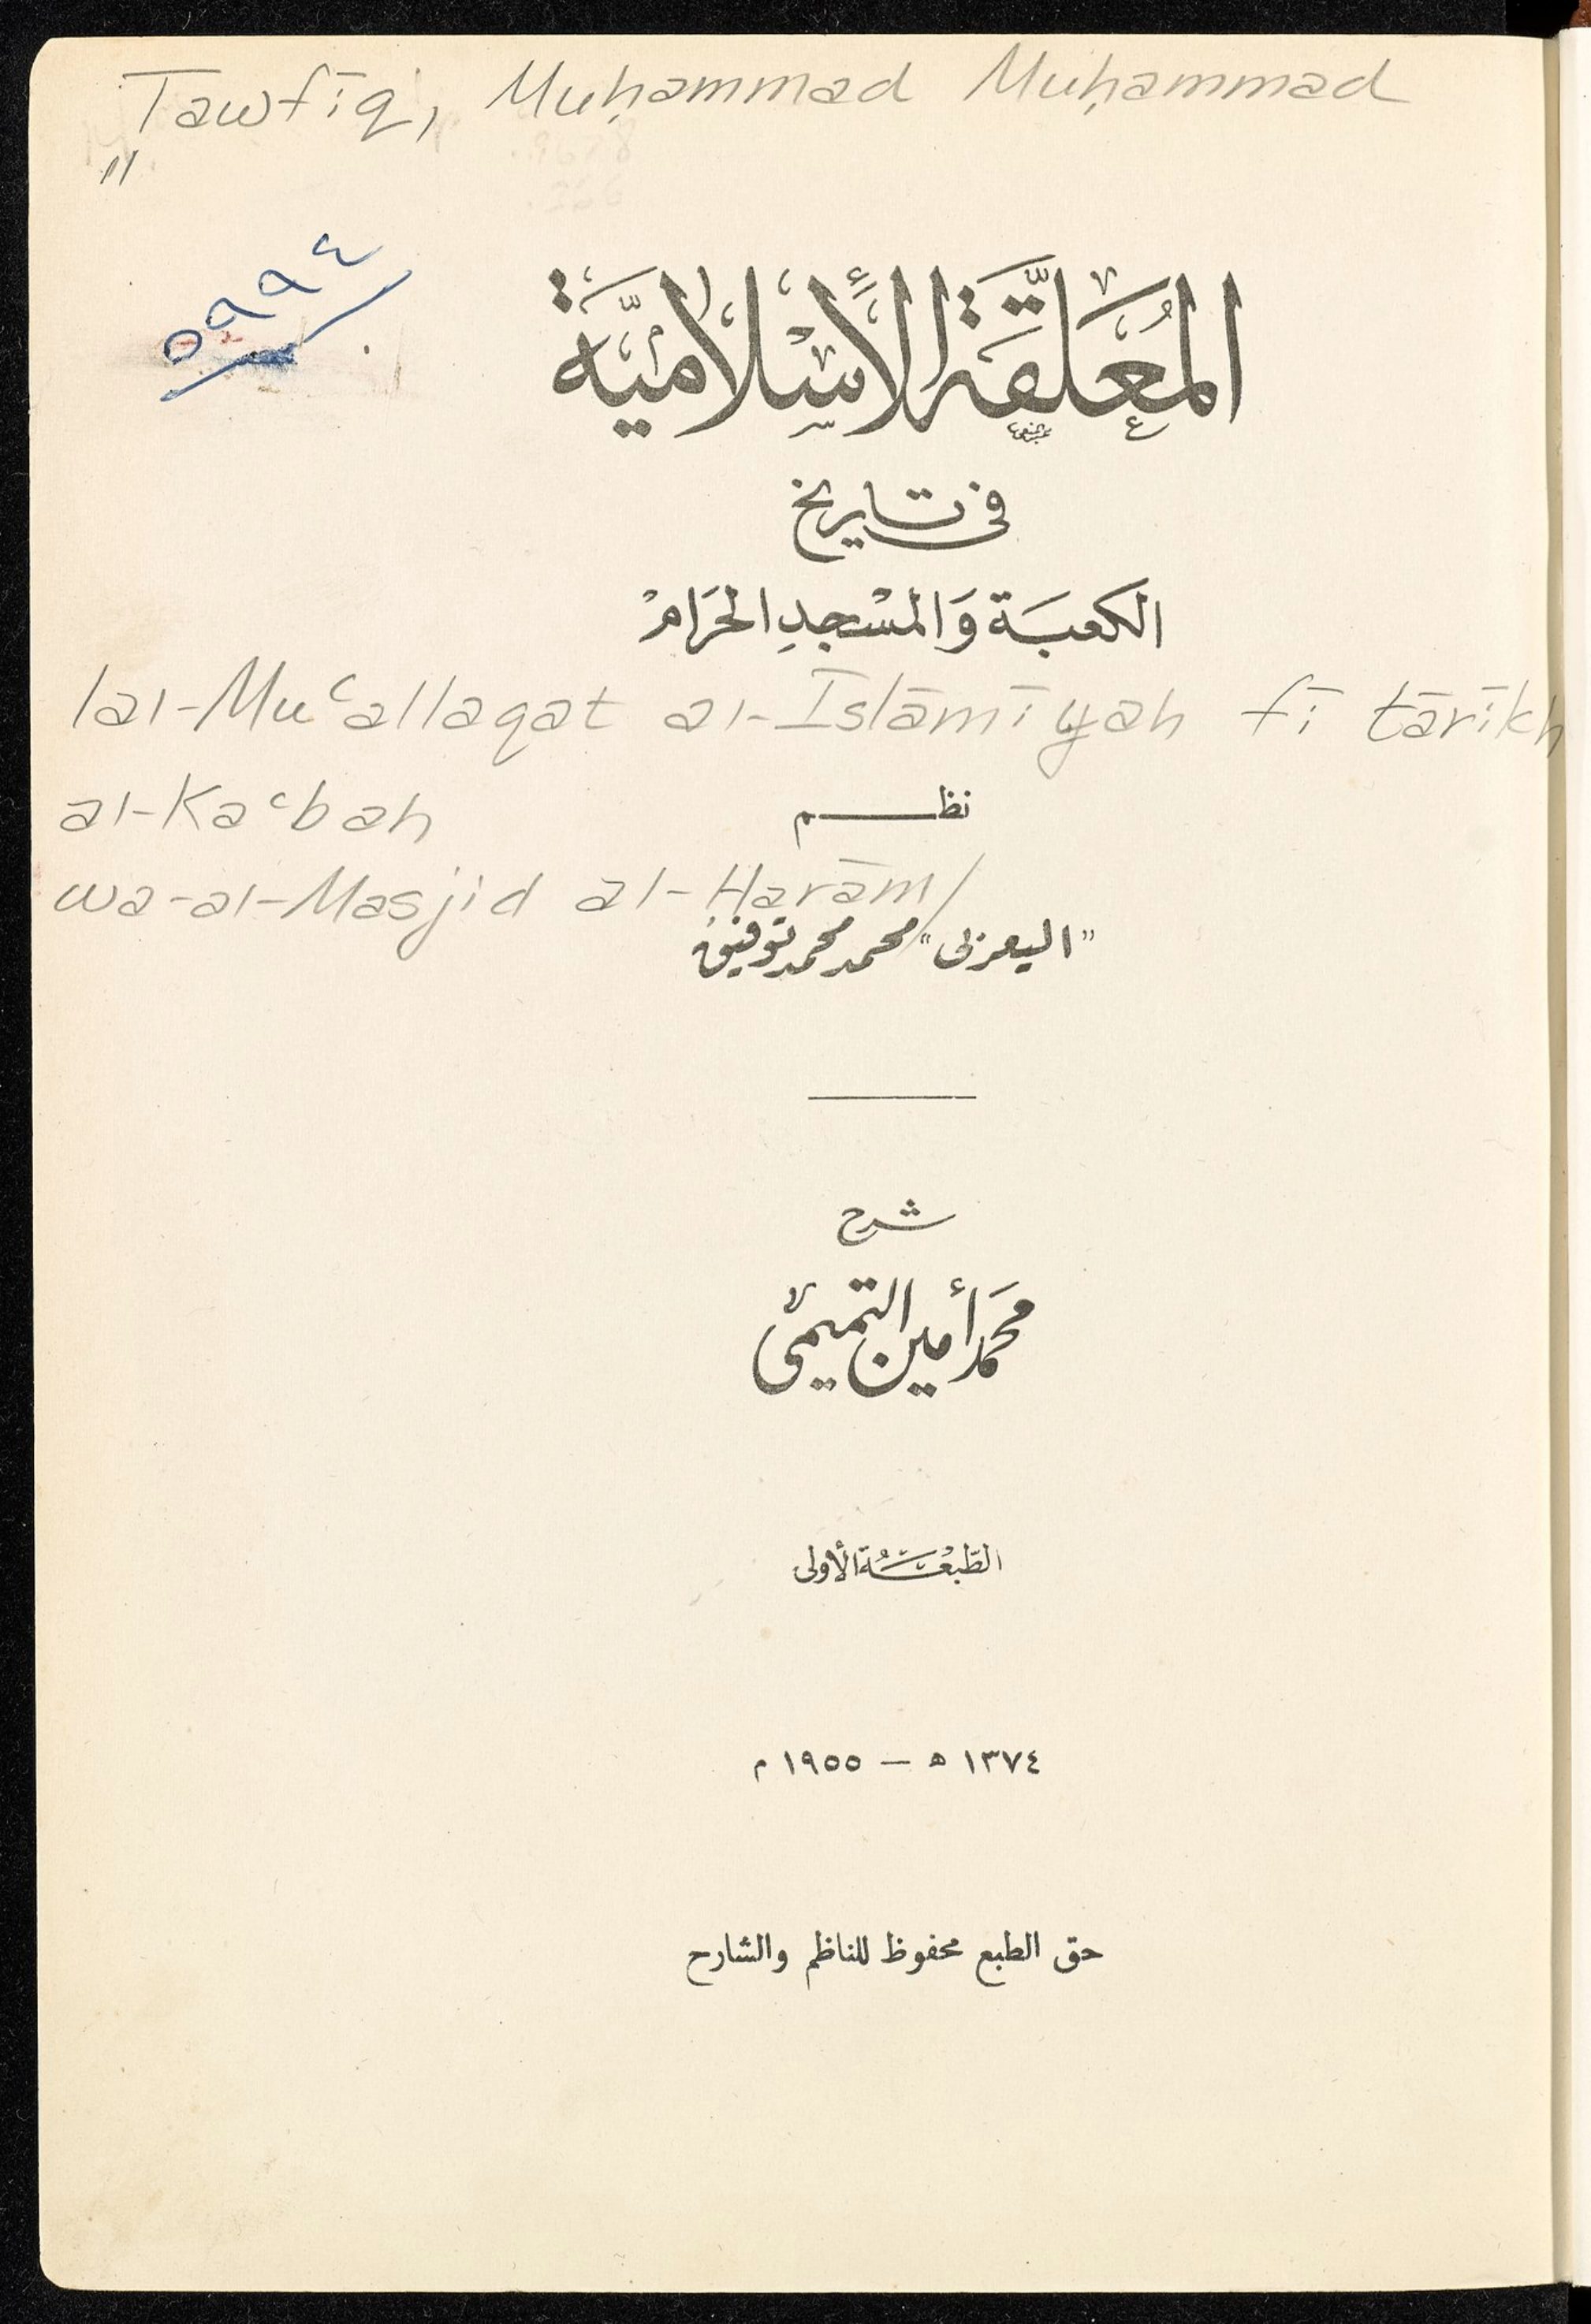 Tawfīq, Muḥammad Muḥammad
"
٥٩٩٤
المُعَلَّقَة الإِسْلاميَّة
فى تاريخ
الكعبَة وَالمسْجدِ الحرَامْ
/al-Muʿallaqat al-Islāmīyah fī tārīkh
al-Kaʿbah
نظم
wa-al-Masjid al-Ḥarām/
"اليعربى" محمد محمد توفيق
شرح
محمَد أمين التميمى
الطّبْعَة الأولى
١٣٧٤ ھ — ١٩٥٥ م
حق الطبع محفوظ للناظم والشارح